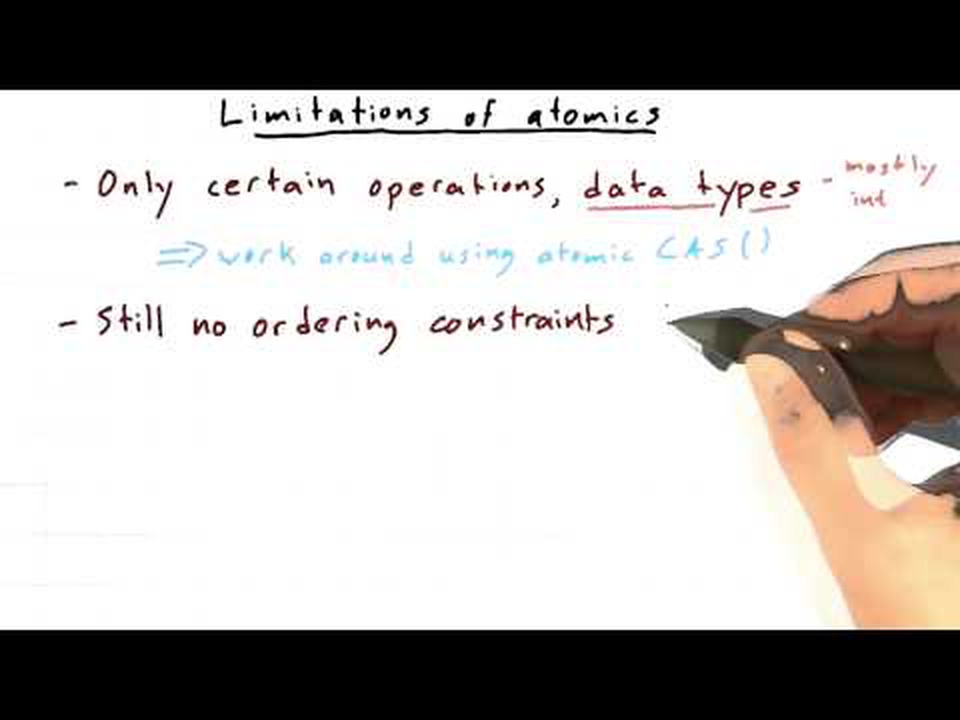 Limitations of atomics
- Only certain operations, data types - mostly int
⇒ work around using atomic CAS()
- Still no ordering constraints